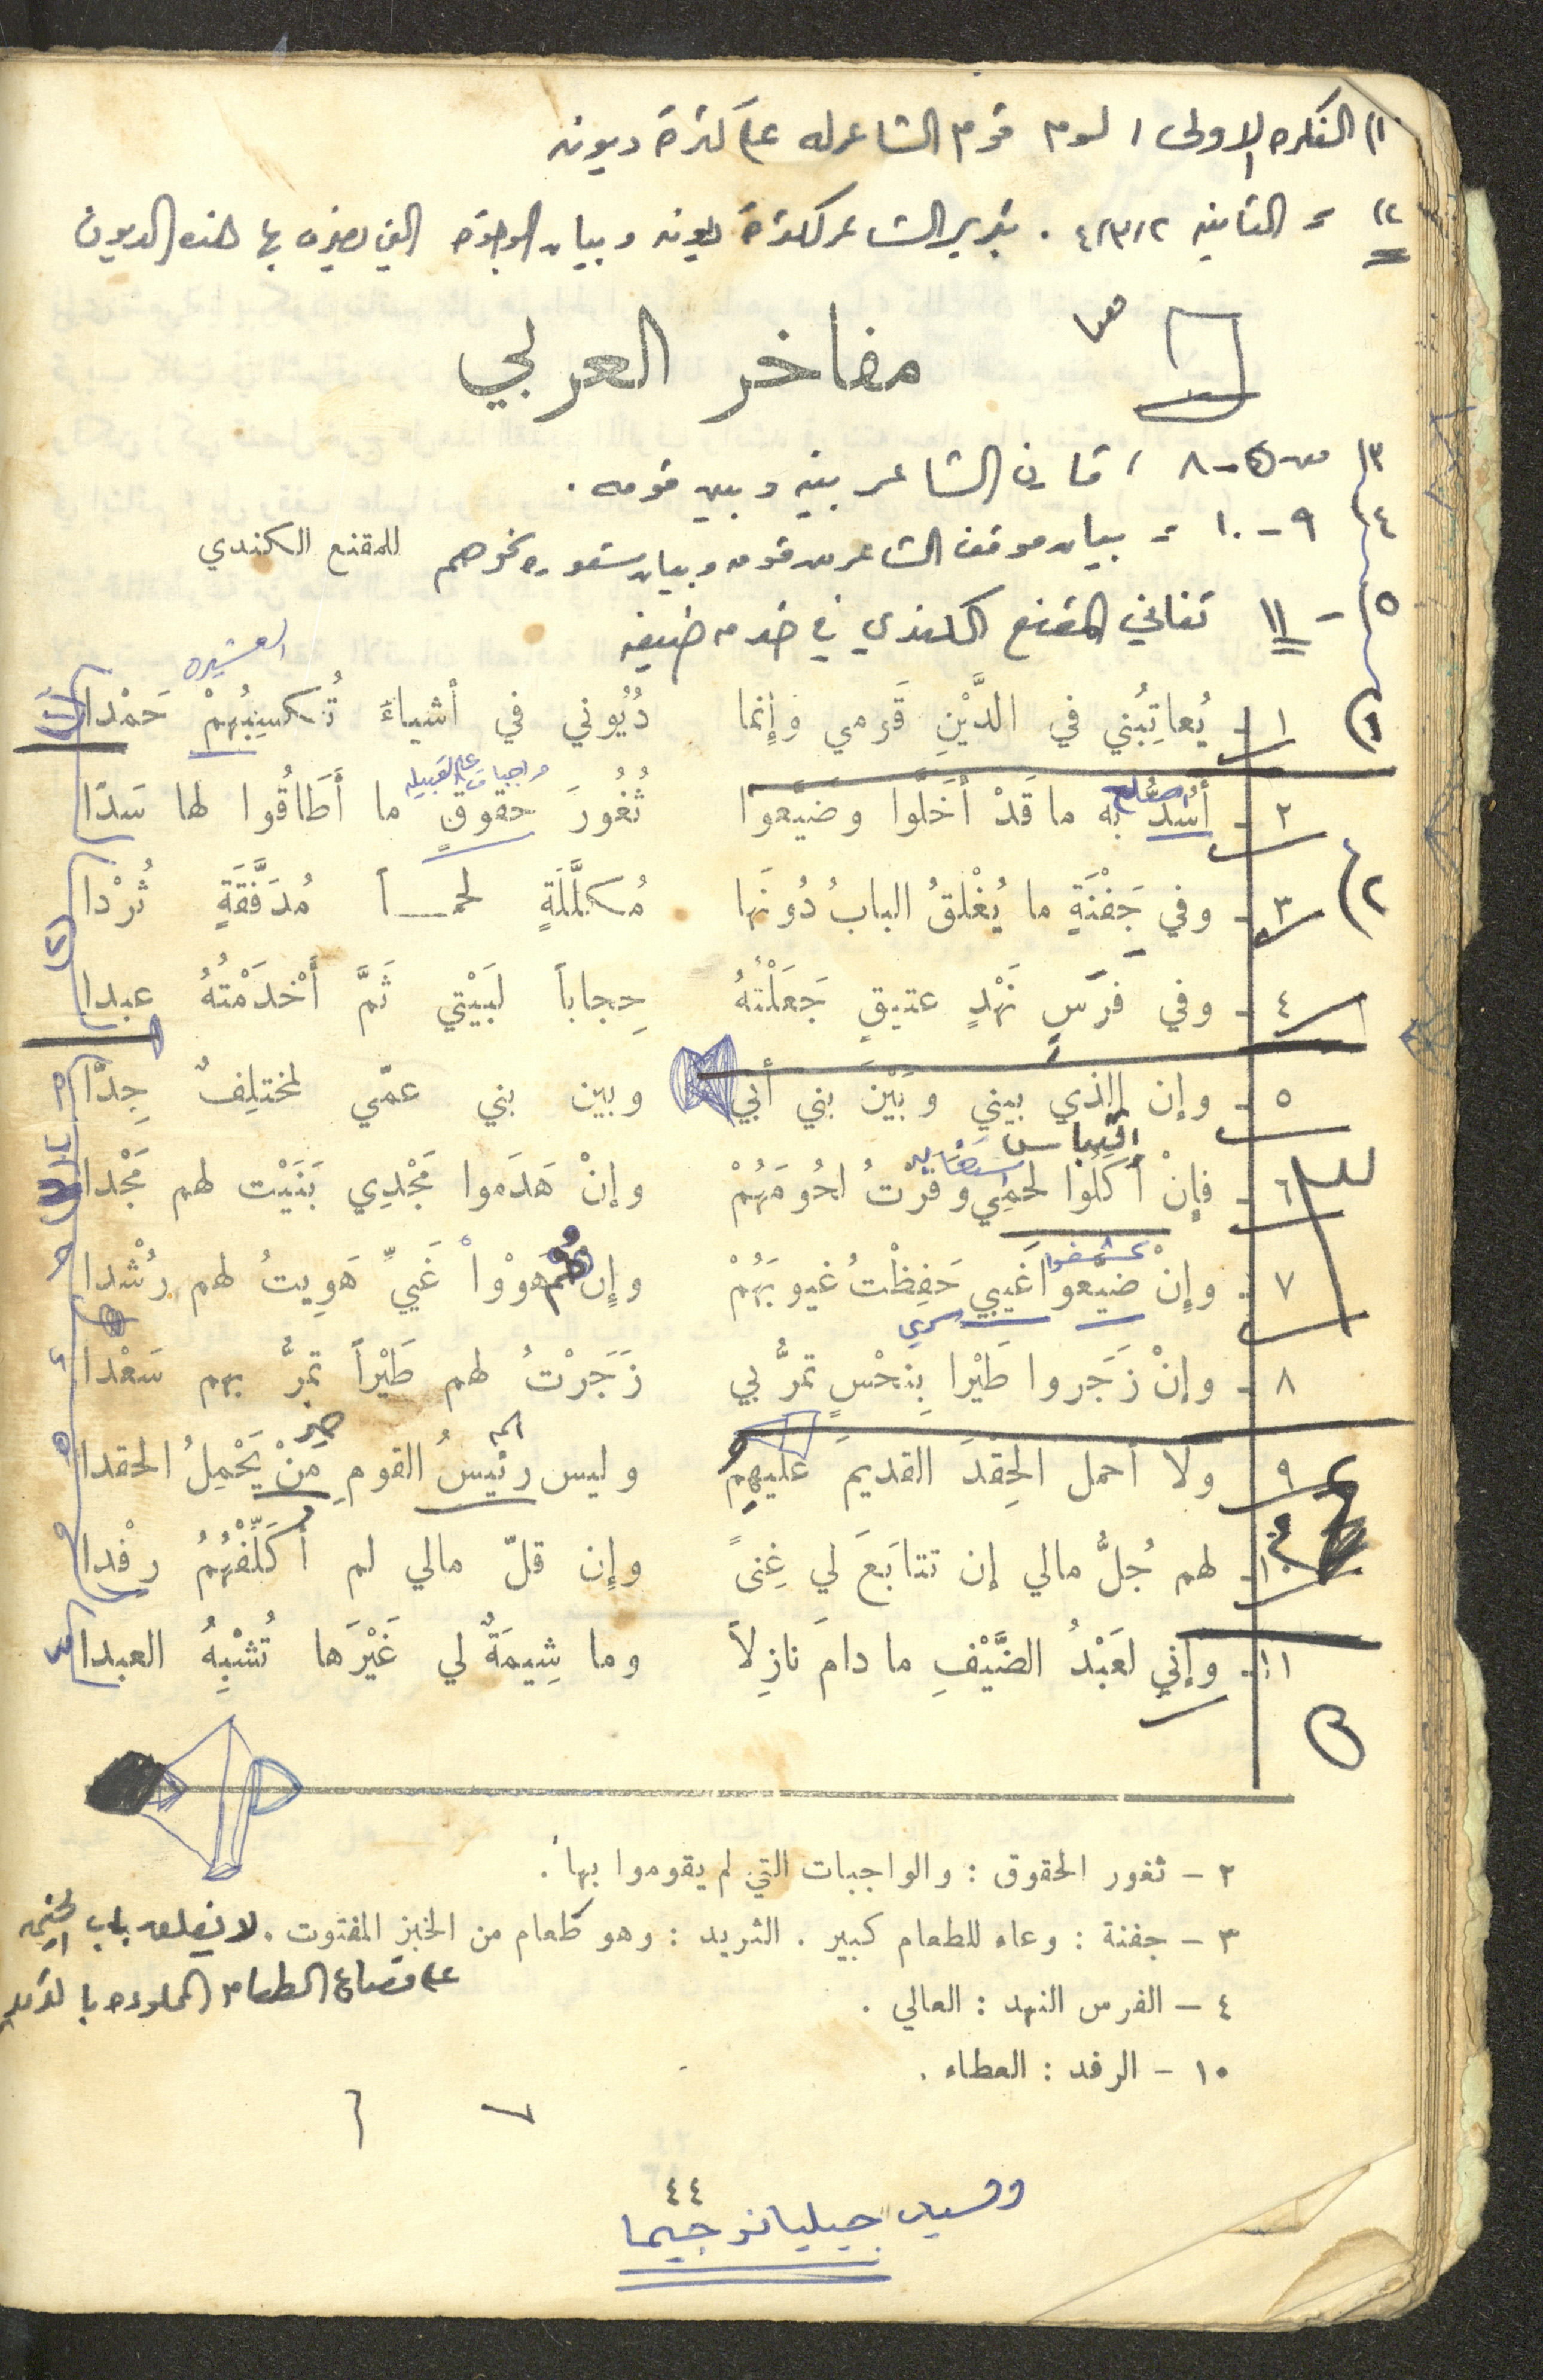 ١) الفكره الاولى / لوم قوم الشاعر له على كثرة ديونه
٢) = الثانيه ٤/٣/٢ . تبرير الشاعر لكثرة ديونه وبيان الوجوه التي يصرف بها هذه الديون
مفاخر العربي
٣) من ٥-٨ ، قارن الشاعر بينه وبين قومه .
٤) ٩-١٠ = بيان موقف الشاعر من قومه وبيان شعوره نحوهم
للمقنع الكندي
٥ - ١١ تفاني المقنع الكندي في خدمه ضيفه
العشيره
١ - يُعاتِبُني في الدَّيْنِ قَومي وإِنما دُيُوني في أشياءَ تُكسِبُهُمْ حَمْدا
اصلح
واجبات على القبيله
٢ - أسُدُّ به ما قَدْ أخَلّوا وضيّعوا ثُغُورَ حقوقٍ ما أَطَاقُوا لها سَدّا
٣ - وفي جَفْنَةٍ ما يُغْلقُ البابُ دُونَها مُكلَّلَةٍ لحمـاً مُدَفَّقَةٍ ثُرْدا
٤ - وفي فَرَسٍ نَهْدٍ عتيقٍ جَعَلْتُهُ حِجاباً لبَيْتي ثَمَّ أَخْدَمْتُهُ عبدا
٥ - وإن الذي بيني وبَيْنَ بني أبي وبين بني عمّي لمختلِفٌ جِدّا
اقتباس
٦ - فإنْ أكلُوا لحمِي وفَرْتُ لحُومَهُمْ وإنْ هَدَموا مَجْدِي بَنَيْت لهم مَجْدا
كشفوا
٧ - وإِنْ ضيّعوا غَيبي حَفِظْتُ غيوبَهُمْ وإِن هُمْ هَوُوْا غَيِّ هَوِيتُ لهم رُشْدا
سري
٨ - وإنْ زَجَروا طَيْرا بِنحْسٍ تمرُّ بي زَجَرْتُ لهم طَيْراً تمرُّ بهم سَعْدا
٩ - ولا أحمل الحِقْدَ القديمَ عليهِمُ وليس رئيسُ القومِ مَنْ يَحْمِلُ الحقدا
١٠ - لهم جُلُّ مالي إن تتابَعَ لي غِنىً وإِن قلّ مالي لم أُكَلِّفْهُمُ رفْدا
١١ - وإني لعَبْدُ الضَّيْفِ ما دامَ نازِلاً وما شِيمَةٌ لي غَيْرَها تُشْبِهُ العبدا
٢ - ثغور الحقوق : والواجبات التي لم يقوموا بها .
٣ - جفنة : وعاء للطعام كبير . الثريد : وهو طعام من الخبز المفتوت .
لا يغلق باب الخيمه
على قصاع الطعام المملوءه بالثريد
٤ - الفرس النهد : العالي .
١٠ - الرفد : العطاء .
٤٤
جيليانو جيما